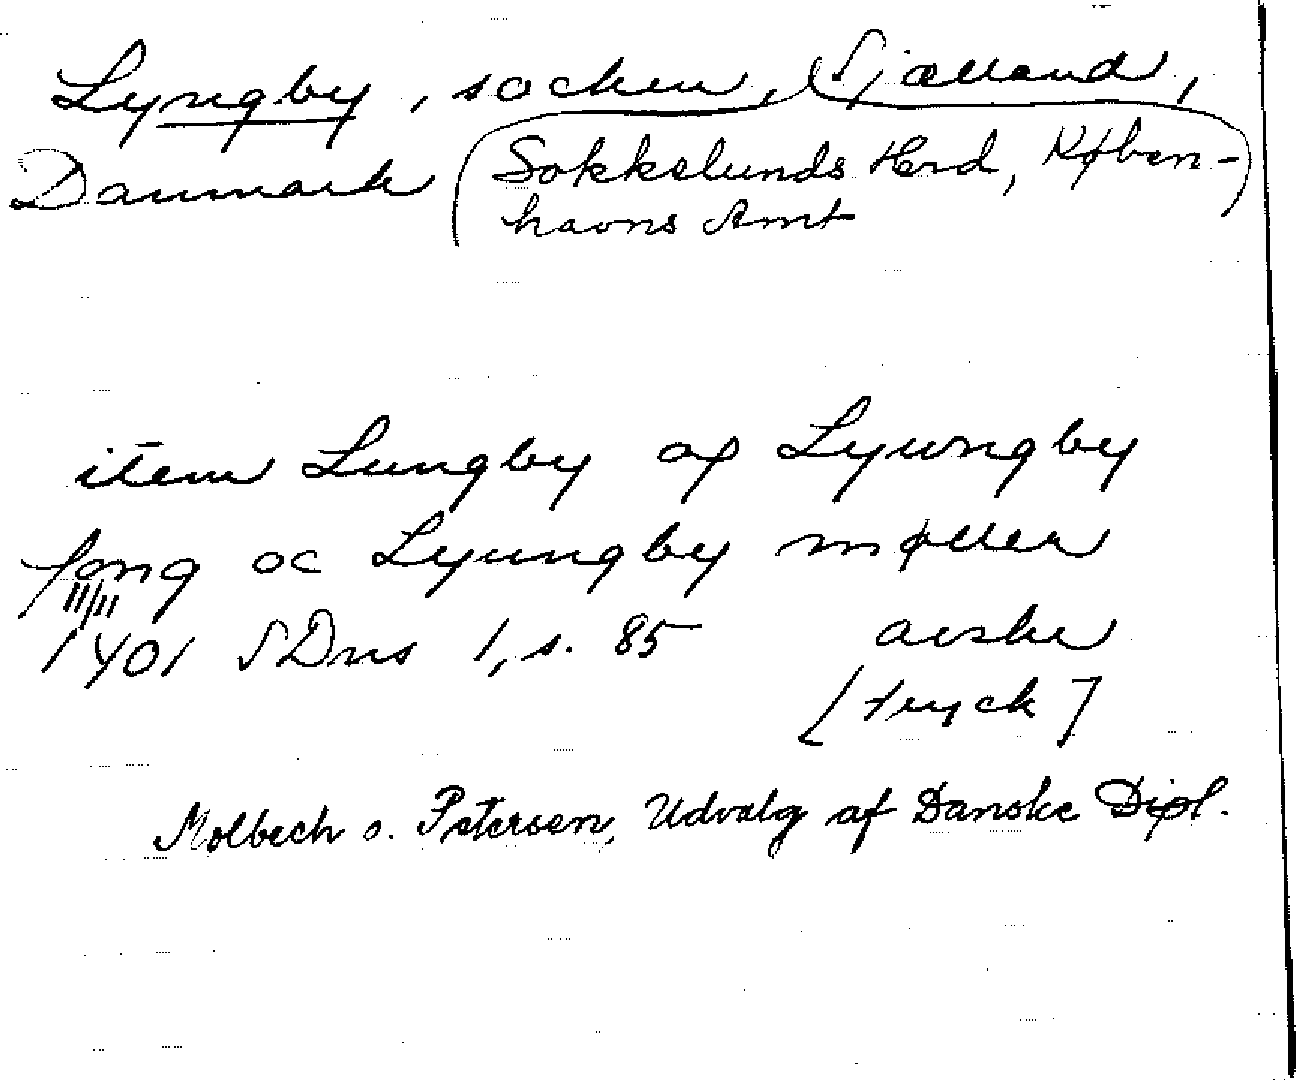 Lyngby, socken, Sjælland,
Danmark (Sokkelunds Herd, Køben-
havns Amt)
item Lungby oc Lyungby
fang oc Lyungby møller
11/11
1401 SDns 1, s. 85 avskr
[tryck]
Molbech o. Petersen, Udvalg af Danske Dipl.